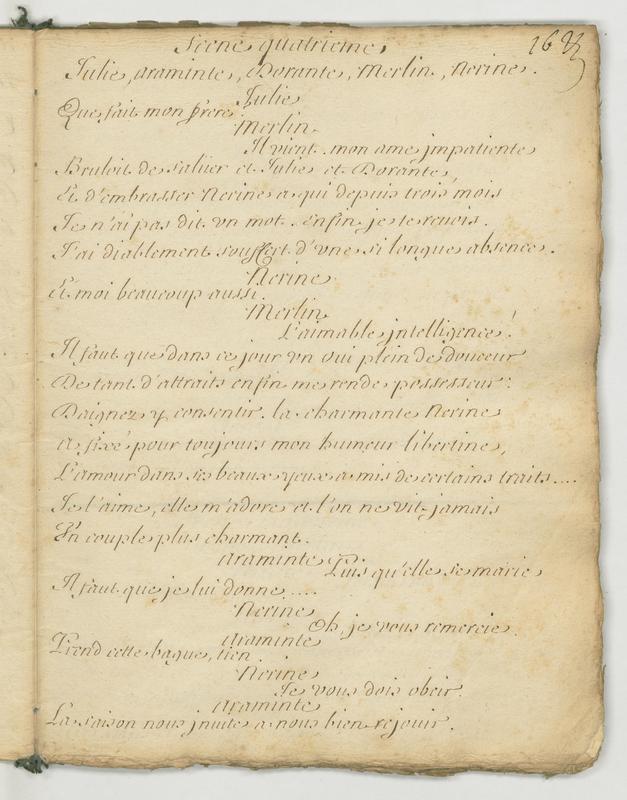 Scene quatrieme,
Julie, araminte, Dorante, Merlin, Nerine.
Julie
Que fait mon frere
Merlin
Il vient. mon ame jmpatiente
Bruloit de saluer et Julie et Dorante,
Et d'embrasser Nerine a qui depuis trois mois
Je n'ai pas dit vn mot. enfin je te revois.
J'ai diablement souffert d'vne si longue absence.
Nerine
Et moi beaucoup aussi.
Merlin
L'aimable jntelligence!
Il faut que dans ce jour vn oui plein de douceur
De tant d'attraits enfin me rende possesseur.
Daignez y consentir. la charmante Nerine
a fixé pour toujours mon humeur libertine,
L'amour dans ses beaux yeux a mis de certains traits....
Je l'aime, elle m'adore et l'on ne vit jamais
Vn couple plus charmant.
araminte
Puis qu'elle se marie
Il faut que je lui donne....
Nerine
Oh je vous remercie.
araminte
Prend cette bague, tien
Nerine
Je vous dois obeir.
araminte
La saison nous jnuite a nous bien rejouir.